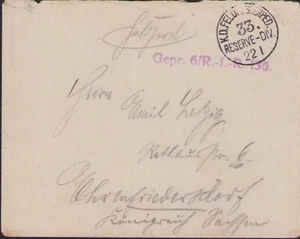 Feldpost
K.D. FELDP. EXPED.
33.
RESERVE-DIV.
22 1
Gepr. 6/R.-I.-R. 130.
Herrn
Emil
Rathausstr. 6
Ehrenfriedersdorf
Königreich Sachsen